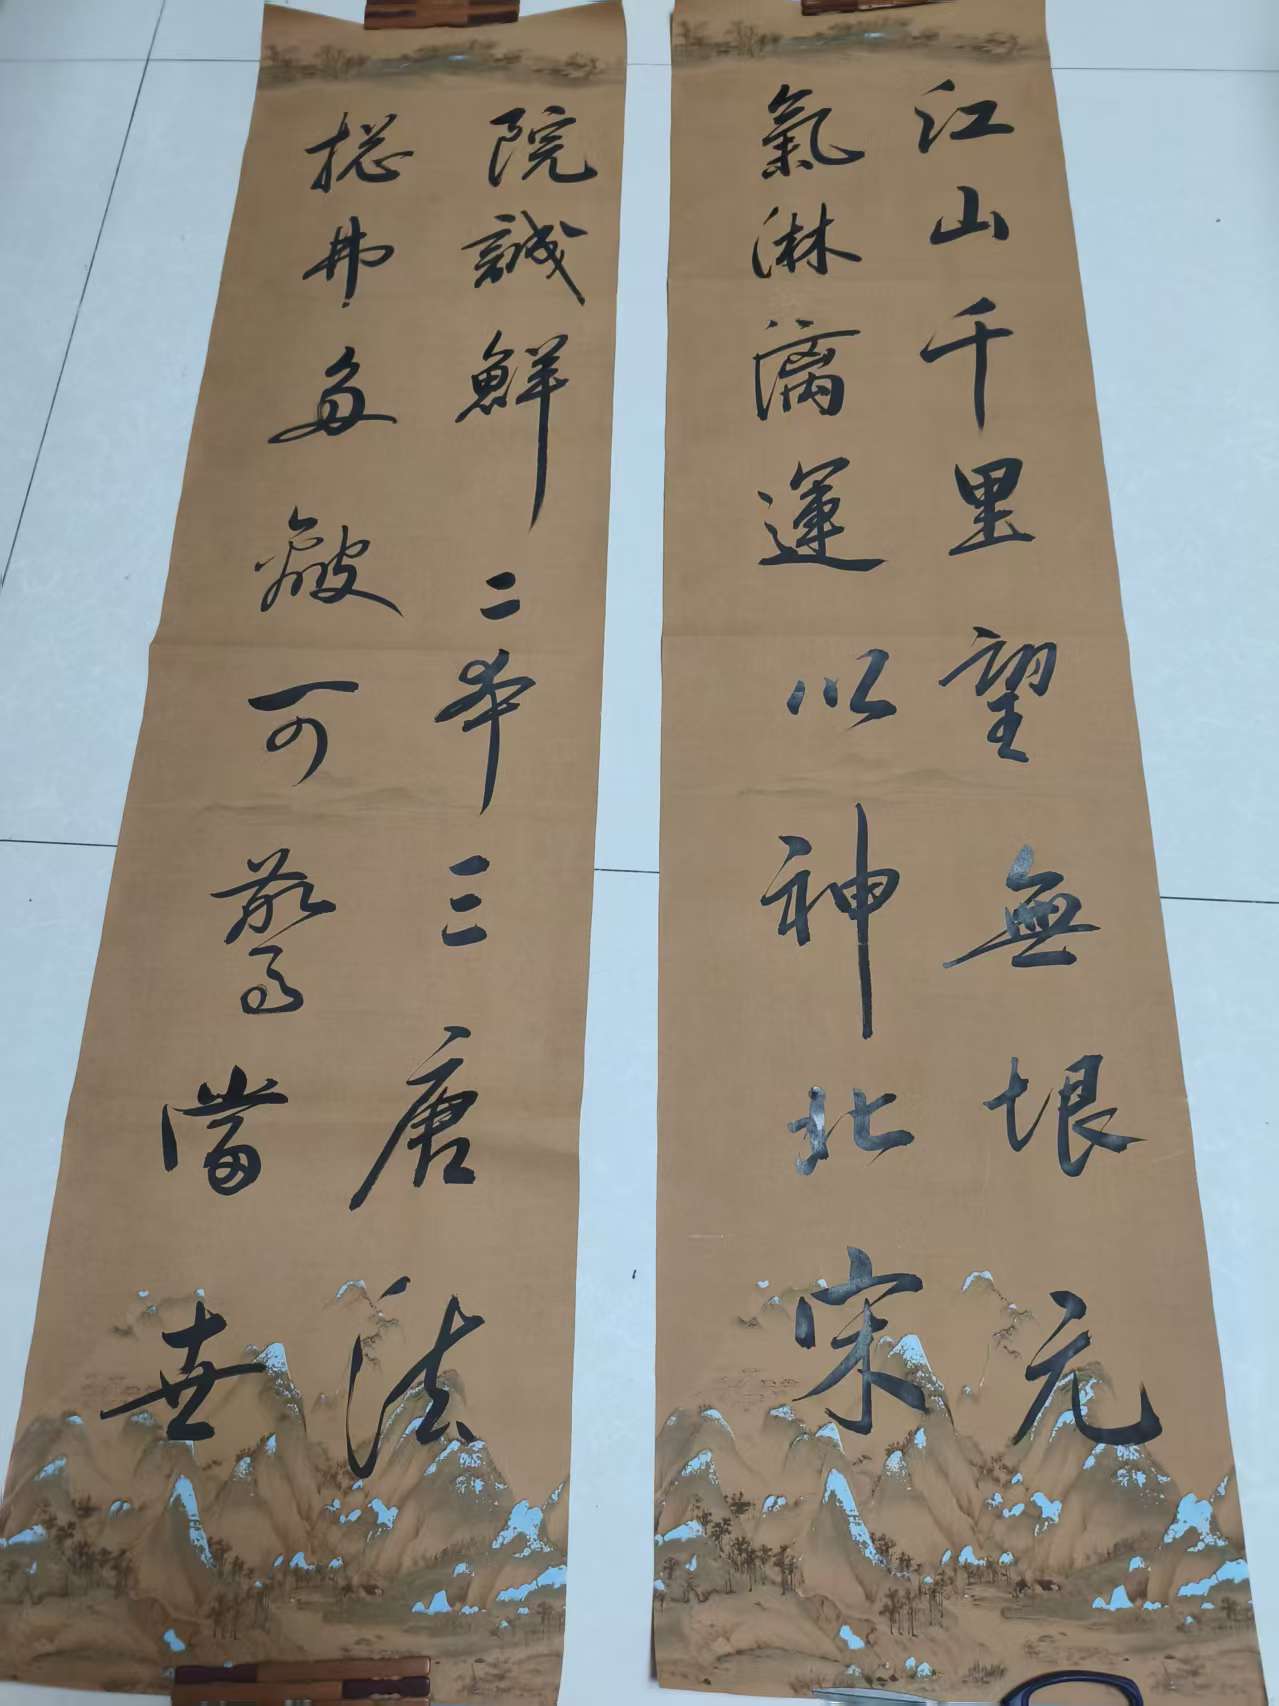 江山千里望無垠元
氣淋漓運以神北宋
院誠鮮二本三唐法
捴弗多皴可驚當世